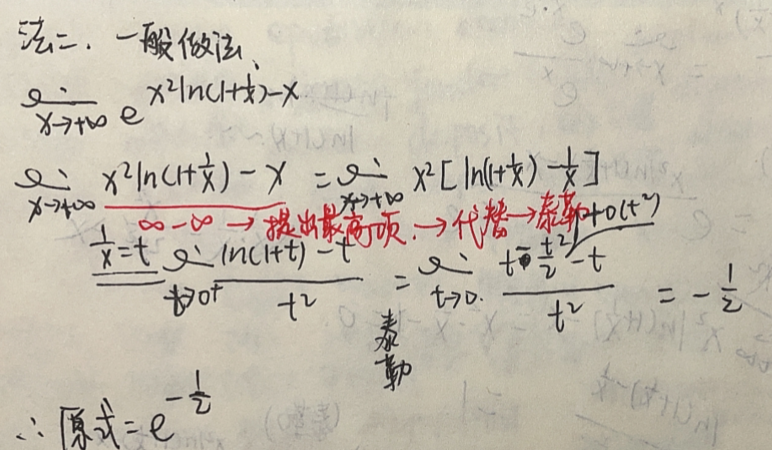 法二、一般做法、
lim x→+∞ e^{x²ln(1+1/x)-x}
lim x→+∞ x²ln(1+1/x)-x = lim x→+∞ x²[ln(1+1/x)-1/x]
∞-∞ → 提出最高项. → 代替 → 泰勒
1/x=t lim t→0⁺ (ln(1+t)-t)/t² = lim t→0. (t-t²/2+o(t²)-t)/t² = -1/2
泰勒
∴ 原式=e^{-1/2}